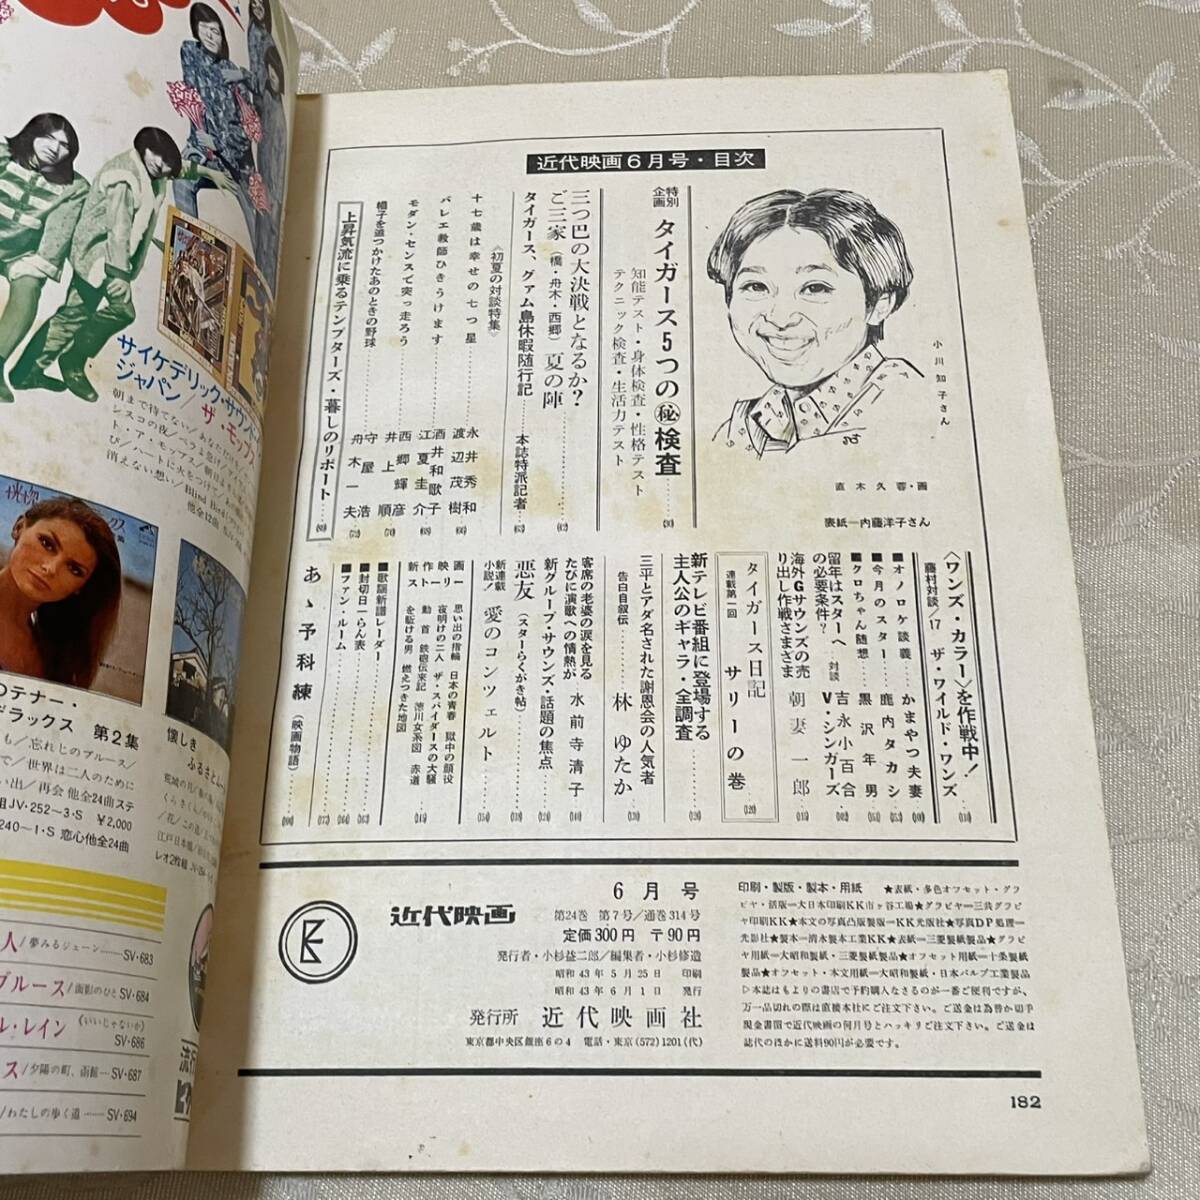 近代映画6月号・目次
小川知子さん
直木久蓉・画
表紙ー内藤洋子さん
特別企画 タイガース5つの㊙検査
知能テスト・身体検査・性格テスト
テクニック検査・生活力テスト
三つ巴の大決戦となるか?
ご三家(橋・舟木・西郷)夏の陣
タイガース、グァム島休暇随行記……本誌特派記者
《初夏の対談特集》
十七歳は幸せの七つ星 永井秀和 渡辺茂樹
バレエ教師ひきうけます 酒井和歌子 江夏圭介
モダン・センスで突っ走ろう 西郷輝彦 井上順
帽子を追っかけたあのときの野球 守屋浩 舟木一夫
上昇気流に乗るテンプターズ・暮しのリポート
〈ワンズ・カラー〉を作戦中!
藤村対談・17 ザ・ワイルド・ワンズ
■オノロケ談義 かまやつ夫妻
■今月のスター 鹿内タカシ
■クロちゃん随想 黒沢年男
留年はスターへの必要条件? 対談 吉永小百合 V・シンガーズ
海外Gサウンズの売り出し作戦さまざま 朝妻一郎
タイガース日記 サリーの巻
連載第一回
新テレビ番組に登場する
主人公のギャラ・全調査
三平とアダ名された謝恩会の人気者
告白自叙伝 林ゆたか
客席の老婆の涙を見る
たびに演歌への情熱が 水前寺清子
新グループ・サウンズ・話題の焦点
悪友(スターらくがき帖)
新連載小説! 愛のコンツェルト
新作映画ストーリー
思い出の指輪 日本の青春 獄中の顔役
夜明けの二人 ザ・スパイダースの大騒動
首 鉄砲伝来記 徳川女系図 赤道を駈ける男 燃えつきた地図
■歌謡新譜レーダー
■封切日一らん表
■ファン・ルーム
あゝ予科練(映画物語)
近代映画
6月号
第24巻 第7号/通巻314号
定価300円 〒90円
発行者・小杉益二郎/編集者・小杉修造
昭和43年5月25日 印刷
昭和43年6月1日 発行
発行所 近代映画社
東京都中央区銀座6の4 電話・東京(572)1201(代)
印刷・製版・製本・用紙 ★表紙・多色オフセット・グラ
ビヤ・活版ー大日本印刷KK市ヶ谷工場★グラビヤー三共グラビ
ヤ印刷KK★本文の写真凸版製版ーKK光版社★写真DP処理ー
光影社★製本ー清水製本工業KK★表紙ー三菱製紙製品★グラビ
ヤ用紙ー大昭和製紙・三菱製紙製品★オフセット用紙ー十条製紙
製品★オフセット・本文用紙ー大昭和製紙・日本パルプ工業製品
▷本誌はもよりの書店で予約購入なさるのが一番ご便利ですが、
万一品切れの際は直接本社にご注文下さい。ご送金は為替か切手
現金書留で近代映画の何月号とハッキリご注文下さい。ご送金は
誌代のほかに送料90円が必要です。
182
サイケデリック・サウンド・
ジャパン/ザ・モップス
朝まで待てない/あなただけを/
消えない想い/Blind Bird
他全12曲
のテナー・
デラックス 第2集
も/忘れじのブルース/
で/世界は二人のために
い出/再会 他全24曲ステ
組JV・252〜3・S ¥2,000
240〜1・S 恋心他全24曲
懐しき
人/夢みるジェーン……SV・683
ブルース/面影のひと SV・684
ル・レイン《いいじゃないか》SV・686
ス/夕陽の町、函館…SV・687
/わたしの歩く道……SV・694